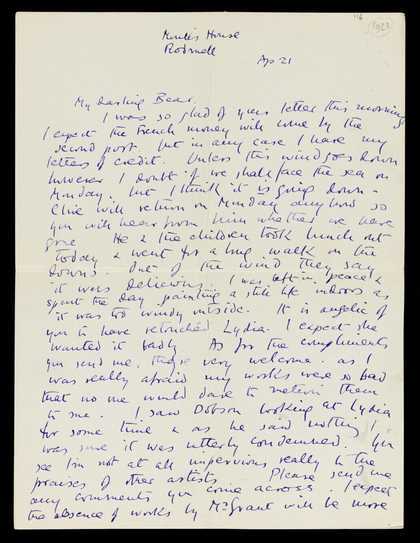 116
1922
Monk's House
Rodmell
Ap 21
My darling Bear
I was so glad of your letter this morning
I expect the French money will come by the
second post but in any case I have my
letters of credit. Unless this wind goes down
however I doubt if we shall face the sea on
Monday. but I think it is going down -
Clive will return on Monday anyhow so
you will hear from him whether we have
gone He & the children took lunch out
today & went for a long walk on the
downs. Out of the wind they say
it was delicious. I was left in peace &
spent the day painting a still life indoors as
it was too windy outside. It is angelic of
you to have retouched Lydia. I expect she
wanted it badly As for the compliments
you send me, those very welcome. as I
was really afraid my works were so bad
that no one would dare to mention them
to me. I saw Dobson looking at Lydia
for some time & as he said nothing I
was sure it was utterly condemned. You
see I'm not at all impervious really to the
praises of other artists Please send me
any comments you come across. I expect
the absence of works by McGrant will be more